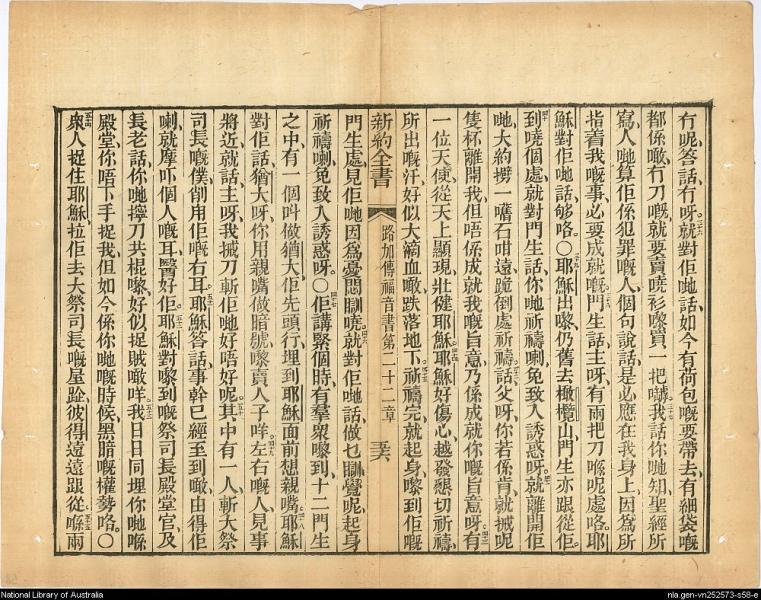 冇呢答話冇呀就對佢哋話如今有荷包嘅要帶去有細袋嘅
都係噉冇刀嘅就要賣嘵衫嚟買一把𠺘我話你哋知聖經所
寫人哋算佢係犯罪嘅人個句說話是必應在我身上因爲所
指着我嘅事必要成就嘅門生話主呀有兩把刀喺呢處咯耶
穌對佢哋話够咯〇耶穌出嚟仍舊去橄欖山門生亦跟從佢
到嘵個處就對門生話你哋祈禱喇免致入誘惑呀就離開佢
哋大約掷一嚿石咁遠跪倒處祈禱話父呀你若係肯就搣呢
隻杯離開我但唔係成就我嘅旨意乃係成就你嘅旨意呀有
一位天使從天上顯現壯健耶穌耶穌好傷心越發懇切祈禱
所出嘅汗好似大滴血噉跌落地下祈禱完就起身嚟到佢嘅
新約全書 路加傳福音書第二十二章 五六
門生處見佢哋因爲憂悶瞓嘵就對佢哋話做乜瞓覺呢起身
祈禱喇免致入誘惑呀〇佢講緊個時有羣衆嚟到十二門生
之中有一個叫做猶大佢先頭行埋到耶穌面前想親嘴耶穌
對佢話猶大呀你用親嘴做暗號嚟賣人子咩左右嘅人見事
將近就話主呀我搣刀斬佢哋好唔好呢其中有一人斬大祭
司長嘅僕削甪佢嘅右耳耶穌答話事幹已經至到噉由得佢
喇就摩吓個人嘅耳醫好佢耶穌對嚟到嘅祭司長殿堂官及
長老話你哋擰刀共棍嚟好似捉賊噉咩我日日同埋你哋喺
殿堂你唔下手捉我但如今係你哋嘅時候黑暗嘅權勢咯〇
衆人捉住耶穌拉佢去大祭司長嘅屋跲彼得遠遠跟從喺兩